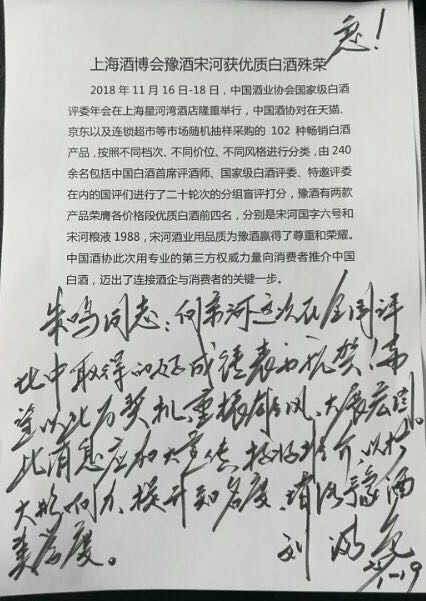 急！
上海酒博会豫酒宋河获优质白酒殊荣
2018 年 11 月 16 日-18 日，中国酒业协会国家级白酒
评委年会在上海星河湾酒店隆重举行，中国酒协对在天猫、
京东以及连锁超市等市场随机抽样采购的 102 种畅销白酒
产品，按照不同档次、不同价位、不同风格进行分类，由 240
余名包括中国白酒首席评酒师、国家级白酒评委、特邀评委
在内的国评们进行了二十轮次的分组盲评打分，豫酒有两款
产品荣膺各价格段优质白酒前四名，分别是宋河国字六号和
宋河粮液 1988，宋河酒业用品质为豫酒赢得了尊重和荣耀。
中国酒协此次用专业的第三方权威力量向消费者推介中国
白酒，迈出了连接酒企与消费者的关键一步。
朱鸣同志：向宋河这次在全国评
比中取得的好成绩表示祝贺！希
望以此为契机，重振雄风，大展宏图。
此消息应加大宣传，搞好推介，以扩
大影响力，提升知名度、豫酒
美誉度。
刘